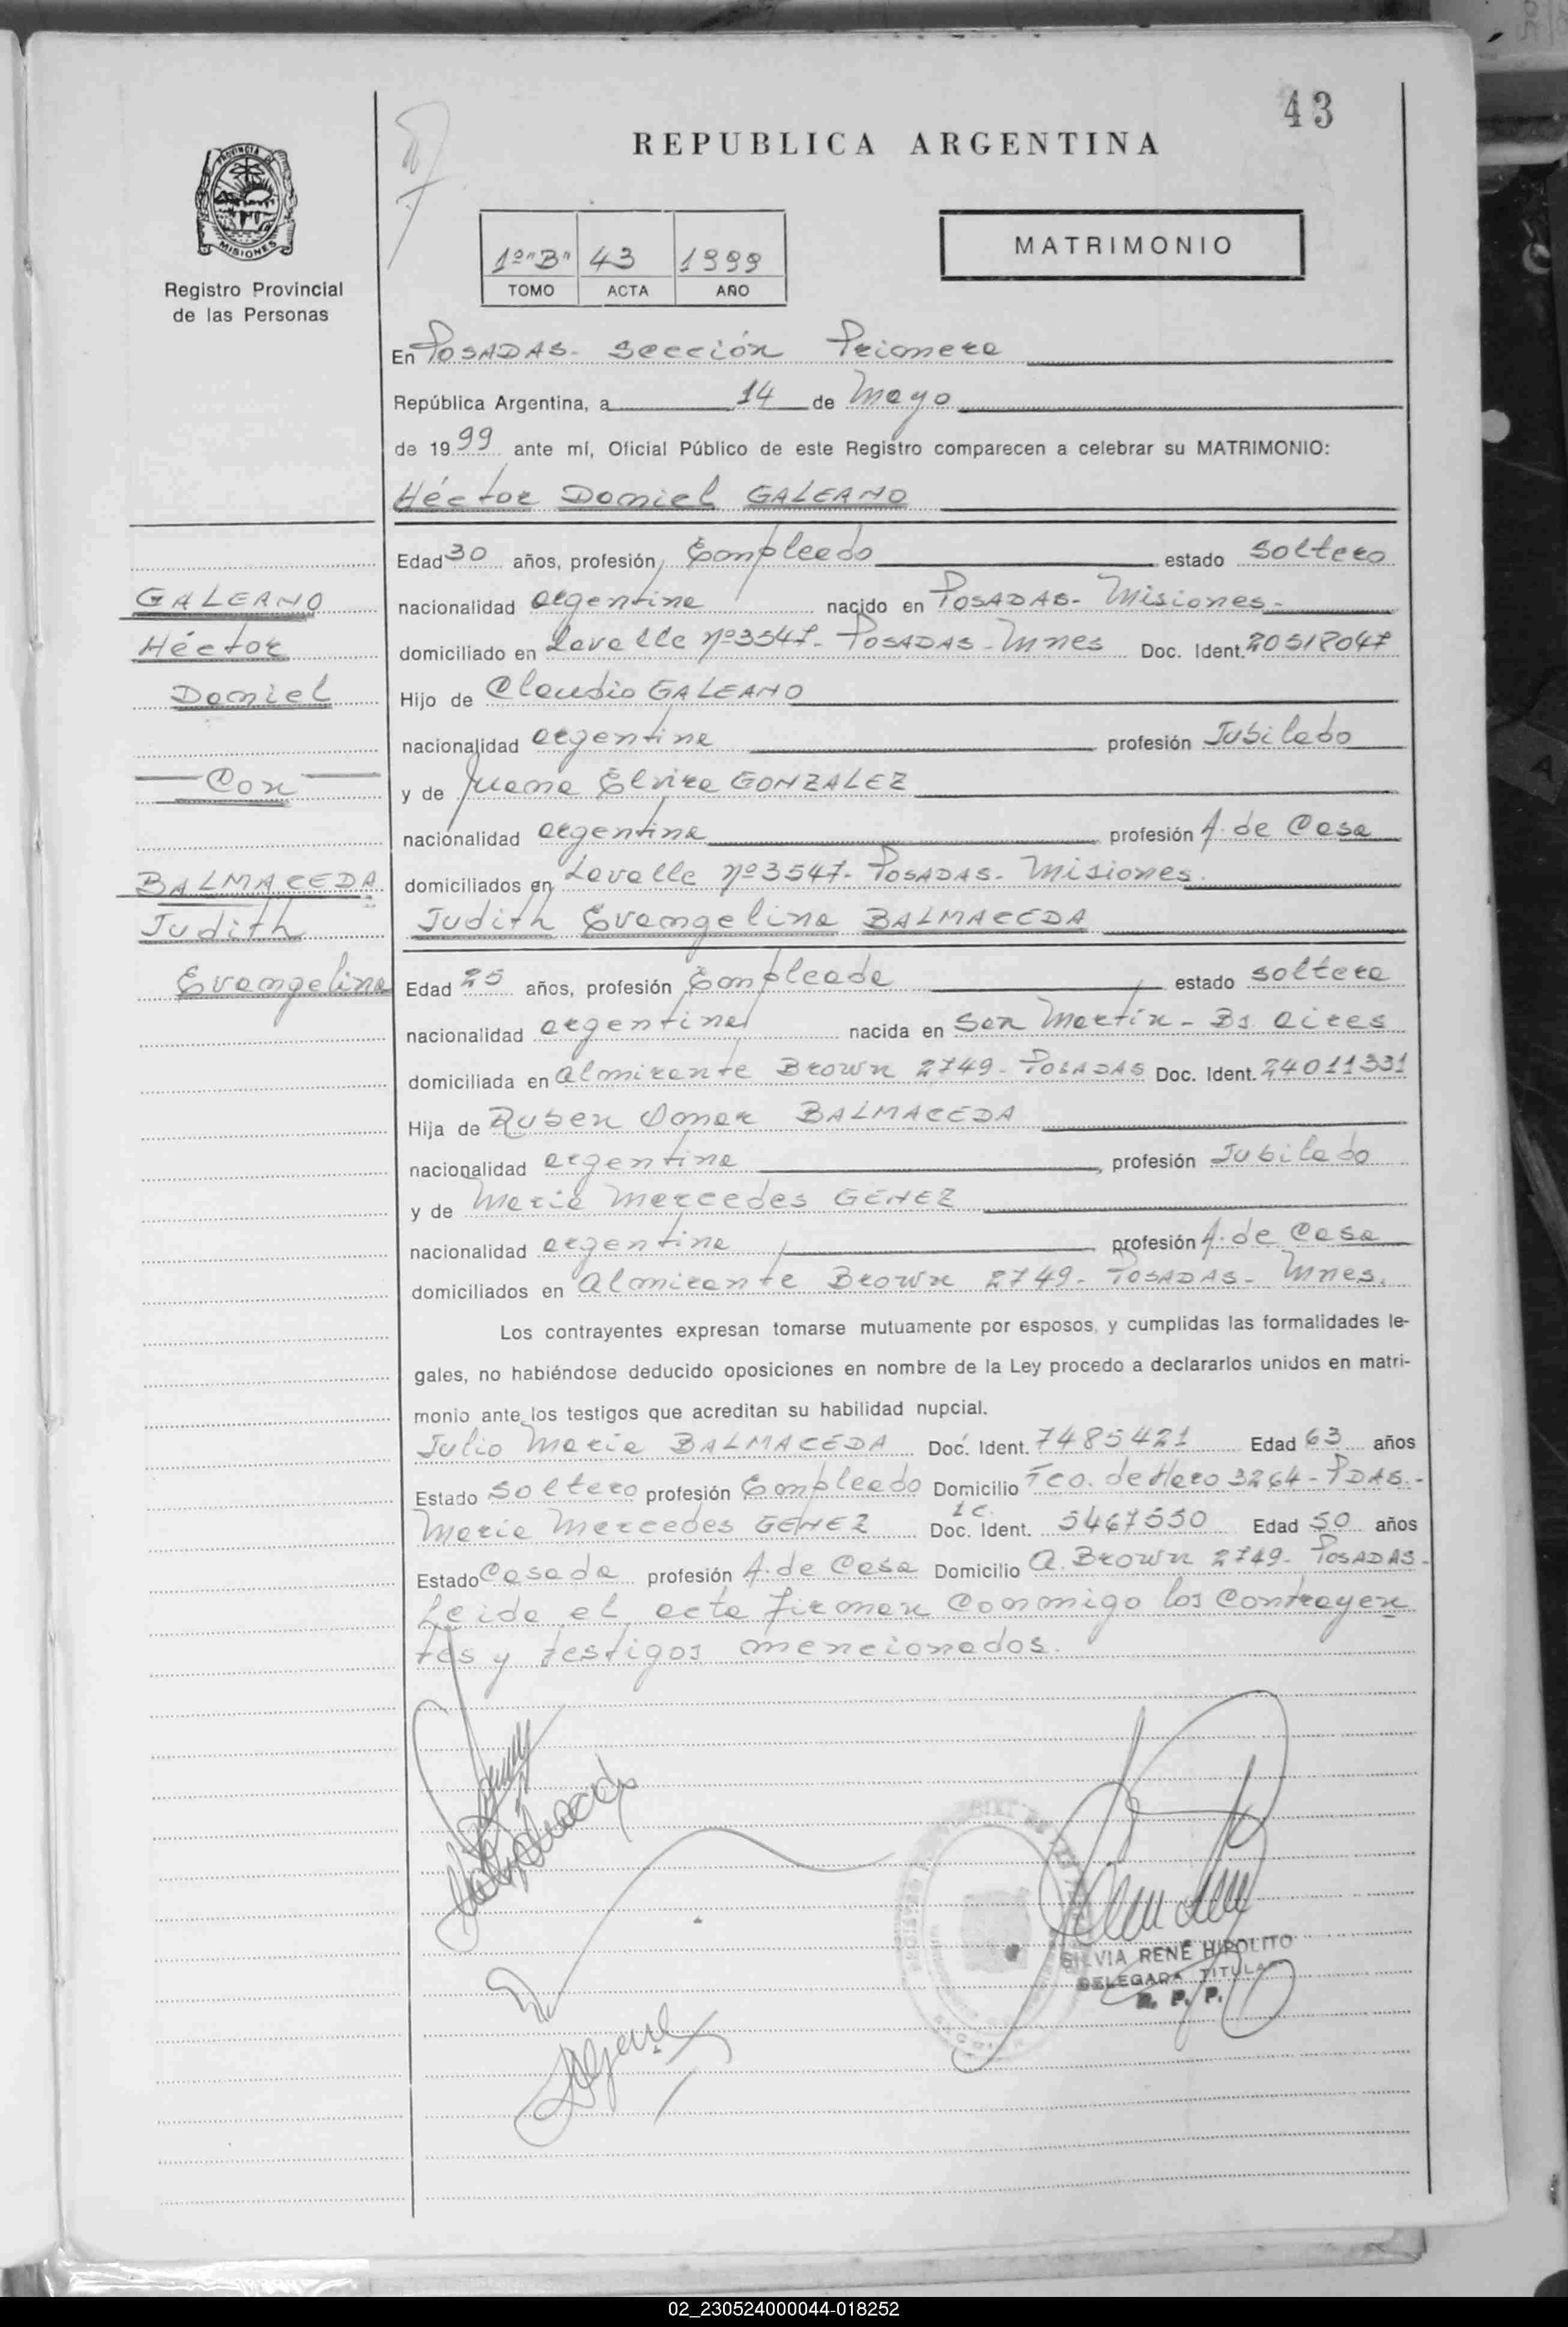 43
REPUBLICA ARGENTINA
PROVINCIA DE
MISIONES
Registro Provincial
de las Personas
1º"B" 43 1999
TOMO ACTA AÑO
MATRIMONIO
En POSADAS- Sección Primera
República Argentina, a 14 de Mayo
de 1999 ante mí, Oficial Público de este Registro comparecen a celebrar su MATRIMONIO:
Héctor Daniel GALEANO
Edad 30 años, profesión Empleado estado soltero
GALEANO
nacionalidad argentina nacido en POSADAS- Misiones-
Héctor
domiciliado en Lavalle nº3547- POSADAS-Mnes Doc. Ident. 20518047
Daniel
Hijo de Claudio GALEANO
nacionalidad argentina profesión Jubilado
Con
y de Juana Elvira GONZALEZ
nacionalidad argentina profesión A. de Casa
BALMACEDA
domiciliados en Lavalle nº3547- POSADAS- Misiones.
Judith
Judith Evangelina BALMACEDA
Evangelina
Edad 25 años, profesión Empleada estado soltera
nacionalidad argentina nacida en San Martín- Bs Aires
domiciliada en Almirante Brown 2749- POSADAS Doc. Ident. 24011331
Hija de Ruben Omar BALMACEDA
nacionalidad argentina, profesión Jubilado
y de María Mercedes GENEZ
nacionalidad argentina profesión A. de Casa
domiciliados en Almirante Brown 2749- POSADAS- Mnes.
Los contrayentes expresan tomarse mutuamente por esposos, y cumplidas las formalidades le-
gales, no habiéndose deducido oposiciones en nombre de la Ley procedo a declararlos unidos en matri-
monio ante los testigos que acreditan su habilidad nupcial.
Julio María BALMACEDA Doc. Ident. 7485421 Edad 63 años
Estado soltero profesión Empleado Domicilio Fco. de Haro 3264-PDAS.-
María Mercedes GENEZ Doc. Ident. LC 5467550 Edad 50 años
Estado Casada profesión A. de Casa Domicilio A. Brown 2749- POSADAS-
Leida el acta firman conmigo los Contrayen
tes y testigos mencionados.
SILVIA RENÉ HIPOLITO
DELEGADA TITULAR
R. P. P.
02_230524000044-018252